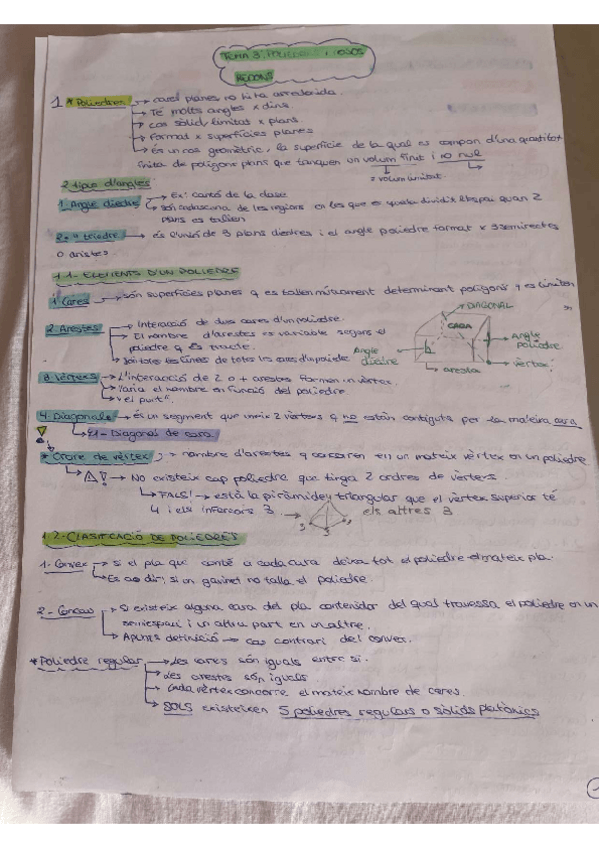 TEMA 3: POLIEDRES I COSOS
REDONS
1 * Poliedres → cares planes no hi ha arredonida.
→ Té molts angles x dins
→ cos sòlid limitat x plans
→ Format x superfícies planes
→ és un cos geomètric, la superfície de la qual es compon d'una quantitat
finita de polígons plans que tanquen un volum finit i no nul
= volum limitat.
2 tipus d'angles
1. Angle diedre → Ex: cantó de la classe
→ són cadascuna de les regions en les que es queda dividit l'espai quan 2
plans es tallen
2. " triedre → és l'unió de 3 plans diedres i el angle poliedre format x 3 semirectes
o aristes
1.1- ELEMENTS D'UN POLIEDRE
1. Cares → són superfícies planes q es tallen mútuament determinant polígons y es limiten
2. Arestes → Interacció de dues cares d'un poliedre.
→ El nombre d'arestes es variable segons el
poliedre q es tracte.
→ són totes les línies de totes les cares d'un poliedre
DIAGONAL
CARA
Angle
poliedre
Angle
diedre
vèrtex
aresta
3. Vèrtexs → L'interacció de 2 o + arestes formen un vèrtex.
→ Varia el nombre en funció del poliedre
→ el punt".
4. Diagonals → és un segment que uneix 2 vèrtexs q no estàn contiguts per la mateixa cara
4.1 - Diagonal de cara.
* Ordre de vèrtex → nombre d'arestes q concorren en un mateix vèrtex en un poliedre
→ ! → No existeix cap poliedre que tinga 2 ordres de vèrtexs
→ FALS! → està la piràmide triangular que el vèrtex superior té
4 i els inferiors 3. → els altres 3
3 3 3
1.2- CLASIFICACIÓ DE POLIEDRES
1- Convex → si el pla que conté a cada cara deixa tot el poliedre el mateix pla.
→ Es a dir; si un gavinet no talla el poliedre.
2- Concau → Si existeix alguna cara del pla contenidor del qual travessa el poliedre en un
semiespai i un altre part en un altre.
→ Apunts definició → cas contrari del convex.
* Poliedre regular → Les cares són iguals entre si.
→ Les arestes són iguals
→ Cada vèrtex concorre el mateix nombre de cares.
→ SOLS existeixen 5 poliedres regulars o sòlids platònics